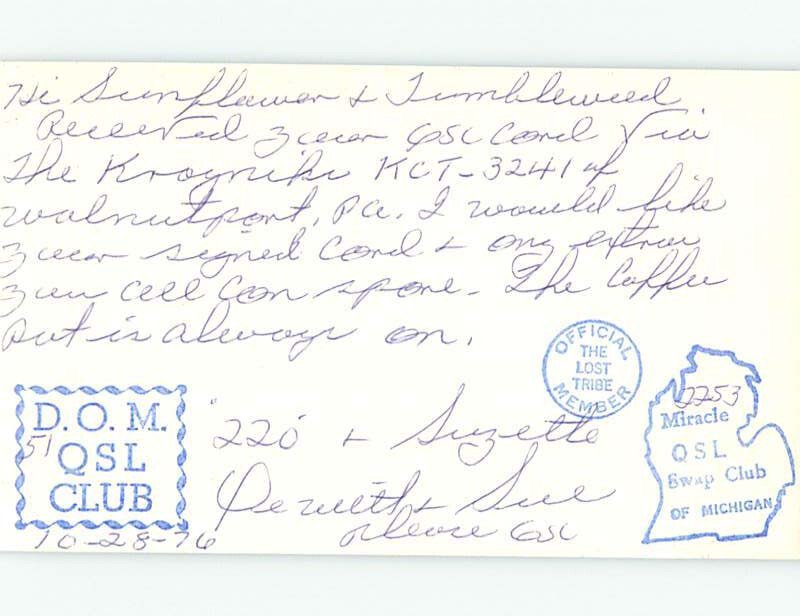 Hi Sunflower & Tumbleweed
Received your QSL Card Via
The KCT-3241 of
Walnutport, Pa. I would like
your signed Card & any extra
you all Can spare. The Coffee
Pot is always on.
OFFICIAL
THE
LOST
TRIBE
MEMBER
2253
Miracle
QSL
Swap Club
OF MICHIGAN
D.O.M.
51 QSL
CLUB
"220 & Suzette
& Sue
please QSL
10-28-76